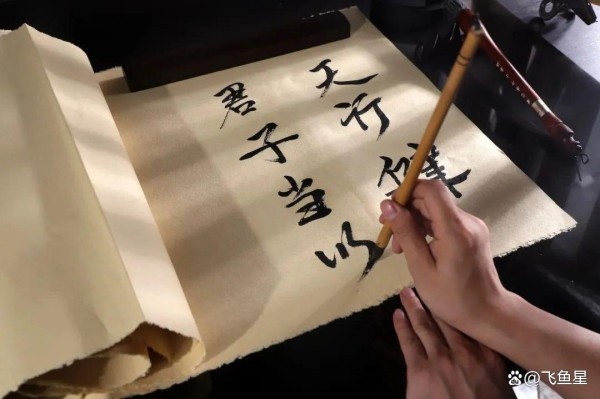 天行健
君子当以
@飞鱼星